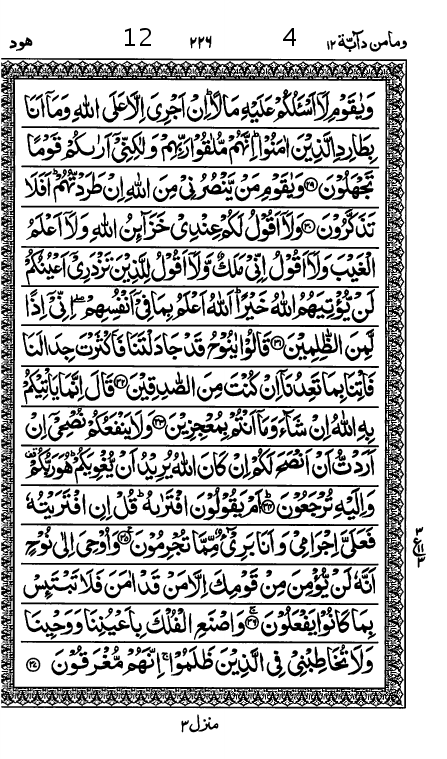 ومامن دآبة ١٢ 4 ٢٢٦ 12 هود
وَيٰقَوْمِ لَآ اَسْئَلُكُمْ عَلَيْهِ مَالًا ؕ اِنْ اَجْرِيَ اِلَّا عَلَى اللّٰهِ وَمَآ اَنَا
بِطَارِدِ الَّذِيْنَ اٰمَنُوْا ؕ اِنَّهُمْ مُّلٰقُوْا رَبِّهِمْ وَلٰكِنِّيْٓ اَرٰىكُمْ قَوْمًا
تَجْهَلُوْنَ ﴿٢٩﴾ وَيٰقَوْمِ مَنْ يَّنْصُرُنِيْ مِنَ اللّٰهِ اِنْ طَرَدْتُّهُمْ ؕ اَفَلَا
تَذَكَّرُوْنَ ﴿٣٠﴾ وَلَآ اَقُوْلُ لَكُمْ عِنْدِيْ خَزَآئِنُ اللّٰهِ وَلَآ اَعْلَمُ
الْغَيْبَ وَلَآ اَقُوْلُ اِنِّيْ مَلَكٌ وَّلَآ اَقُوْلُ لِلَّذِيْنَ تَزْدَرِيْٓ اَعْيُنُكُمْ
لَنْ يُّؤْتِيَهُمُ اللّٰهُ خَيْرًا ؕ اَللّٰهُ اَعْلَمُ بِمَا فِيْٓ اَنْفُسِهِمْ ۖۚ اِنِّيْٓ اِذًا
لَّمِنَ الظّٰلِمِيْنَ ﴿٣١﴾ قَالُوْا يٰنُوْحُ قَدْ جَادَلْتَنَا فَاَكْثَرْتَ جِدَالَنَا
فَاْتِنَا بِمَا تَعِدُنَآ اِنْ كُنْتَ مِنَ الصّٰدِقِيْنَ ﴿٣٢﴾ قَالَ اِنَّمَا يَاْتِيْكُمْ
بِهِ اللّٰهُ اِنْ شَآءَ وَمَآ اَنْتُمْ بِمُعْجِزِيْنَ ﴿٣٣﴾ وَلَا يَنْفَعُكُمْ نُصْحِيْٓ اِنْ
اَرَدْتُّ اَنْ اَنْصَحَ لَكُمْ اِنْ كَانَ اللّٰهُ يُرِيْدُ اَنْ يُّغْوِيَكُمْ ؕ هُوَ رَبُّكُمْ ۫
وَاِلَيْهِ تُرْجَعُوْنَ ﴿٣٤﴾ اَمْ يَقُوْلُوْنَ افْتَرٰىهُ ؕ قُلْ اِنِ افْتَرَيْتُهٗ
فَعَلَيَّ اِجْرَامِيْ وَاَنَا بَرِيْٓءٌ مِّمَّا تُجْرِمُوْنَ ﴿٣٥﴾ وَاُوْحِيَ اِلٰى نُوْحٍ
اَنَّهٗ لَنْ يُّؤْمِنَ مِنْ قَوْمِكَ اِلَّا مَنْ قَدْ اٰمَنَ فَلَا تَبْتَئِسْ
بِمَا كَانُوْا يَفْعَلُوْنَ ﴿٣٦﴾ وَاصْنَعِ الْفُلْكَ بِاَعْيُنِنَا وَوَحْيِنَا
وَلَا تُخَاطِبْنِيْ فِي الَّذِيْنَ ظَلَمُوْا ۚ اِنَّهُمْ مُّغْرَقُوْنَ ﴿٣٧﴾
٣
ع ١١
٣
منزل ٣